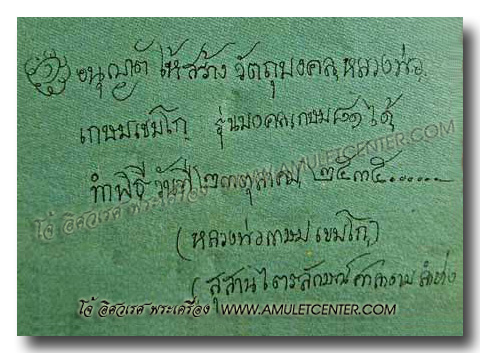 อนุญาติ ให้สร้าง วัตถุมงคล หลวงพ่อ
เกษมเขมโก รุ่นมงคลเกษม๘๑ ได้
ทำพิธี วันที่ ๒๓ตุลาคม ๒๕๓๕......
(หลวงพ่อเกษม เขมโก)
(สุสานไตรลักษณ์ ลำปาง
WWW.AMULETCENTER.COM
โอ๋ อิศวเรศ พระเครื่อง
โอ๋ อิศวเรศ พระเครื่อง WWW.AMULETCENTER.COM